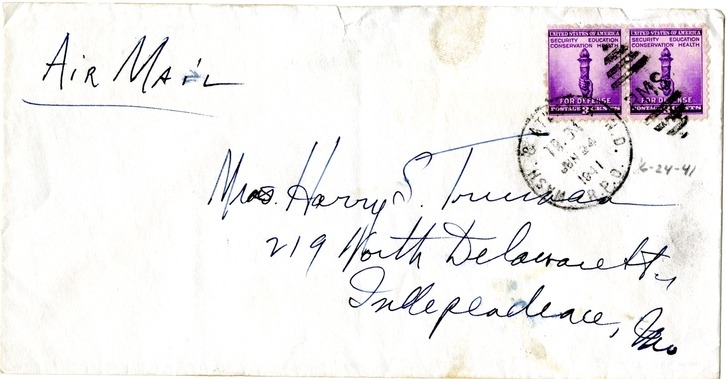 Air Mail
UNITED STATES OF AMERICA
SECURITY EDUCATION
CONSERVATION HEALTH
FOR DEFENSE
POSTAGE 3 CENTS
UNITED STATES OF AMERICA
SECURITY EDUCATION
CONSERVATION HEALTH
FOR DEFENSE
RMS
WASH. & R.P.O.
JUN 24
1941
6-24-41
Mrs. Harry S. Truman
219 North Delaware St.,
Independence, Mo